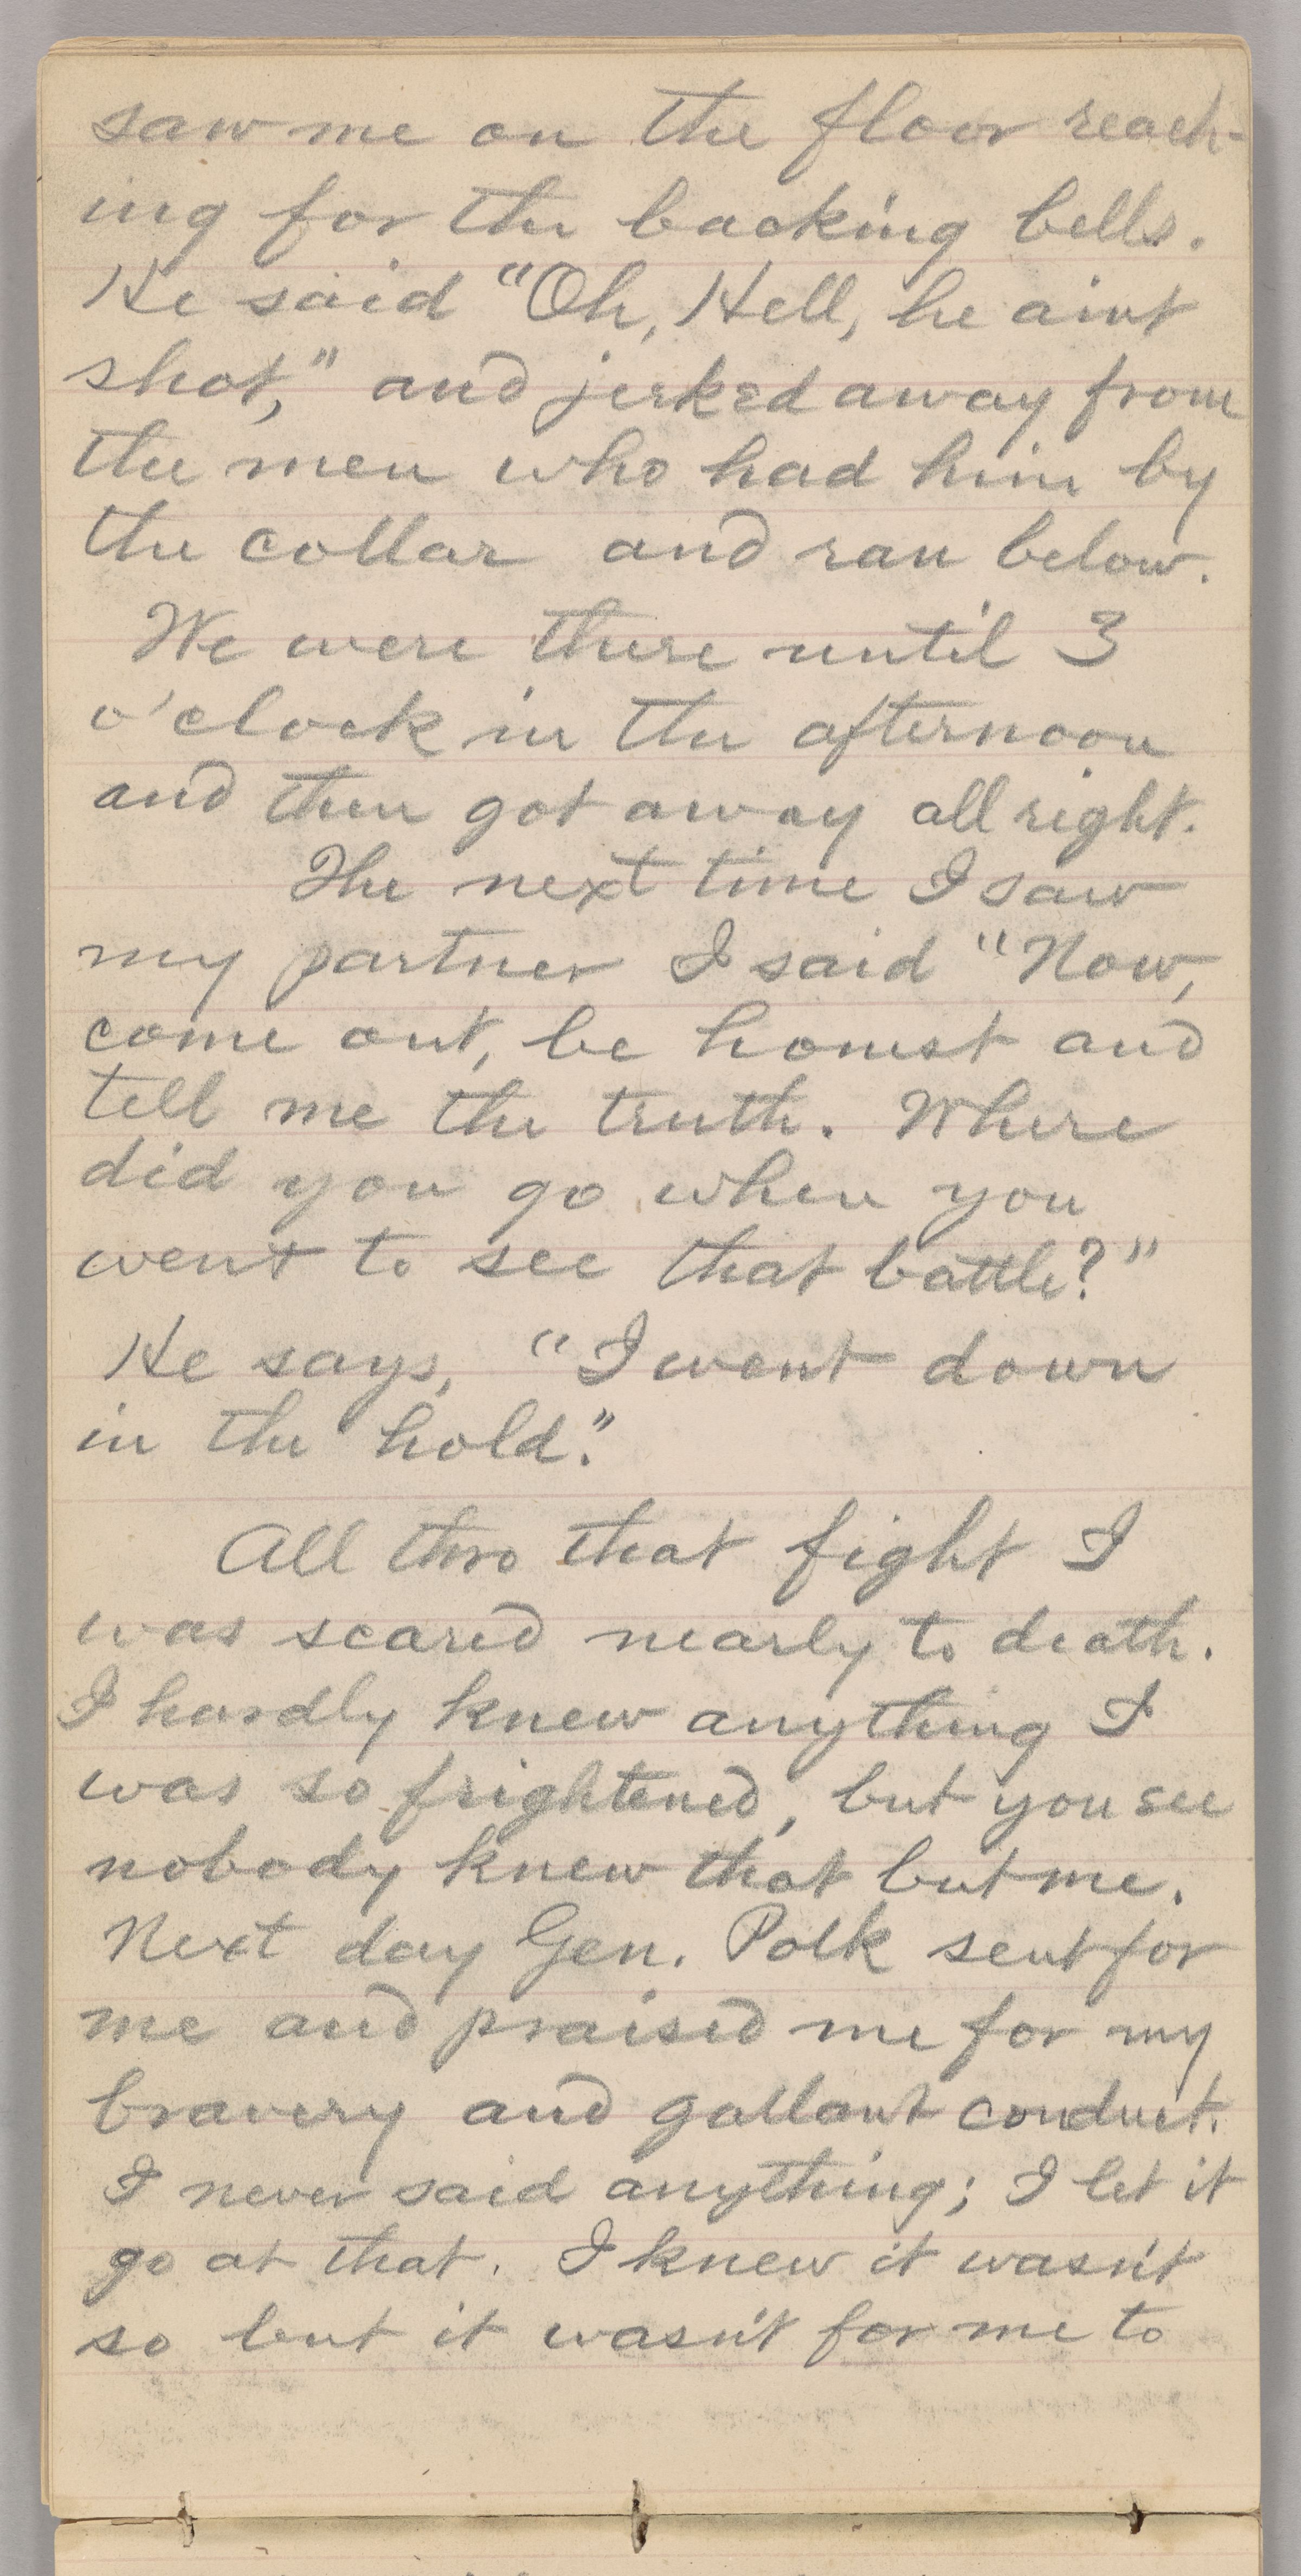 saw me on the floor reach-
ing for the backing bells.
He said "Oh, Hell, he aint
shot," and jerked away from
the men who had him by
the collar and ran below.
We were there until 3
o'clock in the afternoon
and then got away all right.
The next time I saw
my partner I said "Now,
come out, be honest and
tell me the truth. Where
did you go when you
went to see that battle?"
He says, "I went down
in the hold."
All thro that fight I
was scared nearly to death.
I hardly knew anything I
was so frightened, but you see
nobody knew that but me.
Next day Gen. Polk sent for
me and praised me for my
bravery and gallant conduct.
I never said anything; I let it
go at that. I knew it wasn't
so but it wasn't for me to